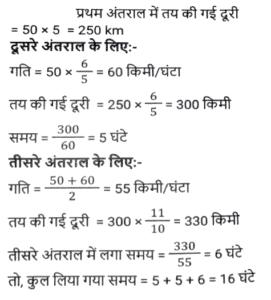 प्रथम अंतराल में तय की गई दूरी
= 50 × 5 = 250 km
दूसरे अंतराल के लिए:-
गति = 50 × 6/5 = 60 किमी/घंटा
तय की गई दूरी = 250 × 6/5 = 300 किमी
समय = 300/60 = 5 घंटे
तीसरे अंतराल के लिए:-
गति = 50 + 60/2 = 55 किमी/घंटा
तय की गई दूरी = 300 × 11/10 = 330 किमी
तीसरे अंतराल में लगा समय = 330/55 = 6 घंटे
तो, कुल लिया गया समय = 5 + 5 + 6 = 16 घंटे